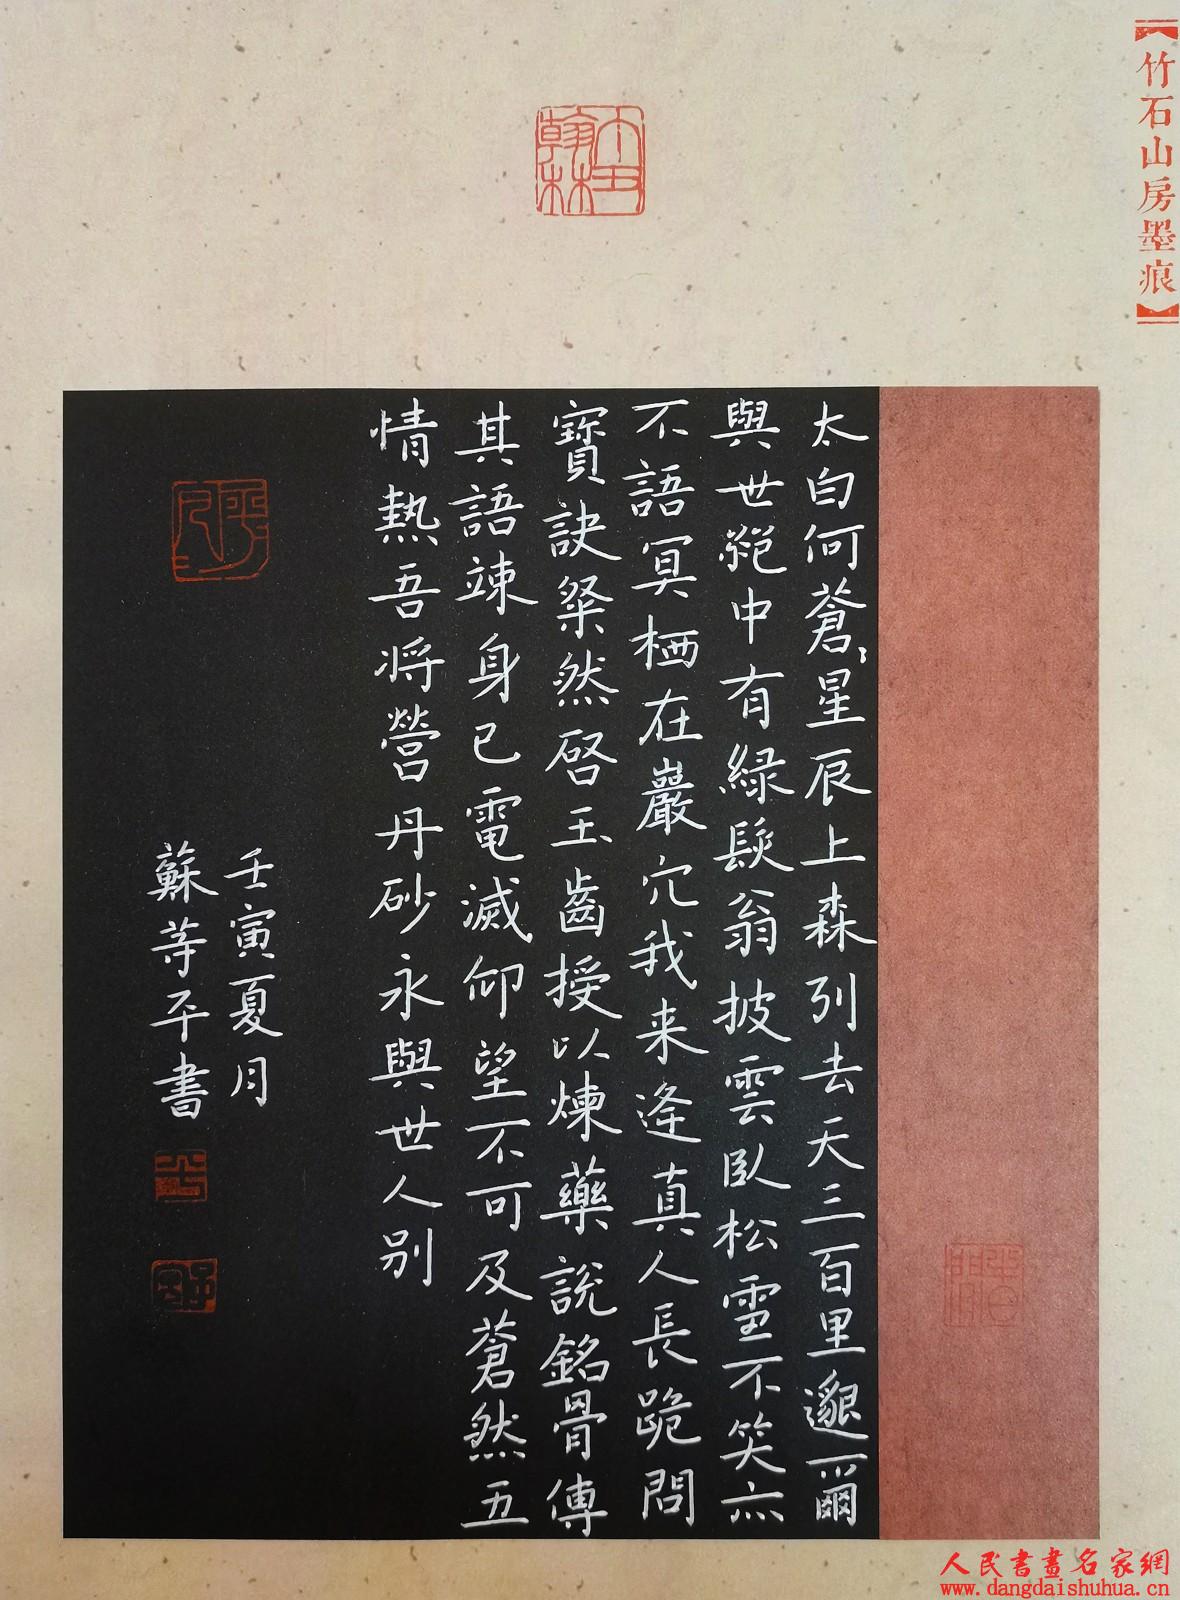 【竹石山房墨痕】
太白何蒼々星辰上森列去天三百里邈爾
與世絕中有綠髮翁披雲臥松雪不笑亦
不語冥栖在巖穴我来逢真人長跪問
寶訣粲然啓玉齒授以煉藥說銘骨傳
其語竦身已電滅仰望不可及蒼然五
情熱吾将營丹砂永與世人别
壬寅夏月
蘇等平書
人民書畫名家網
www.dangdaishuhua.cn